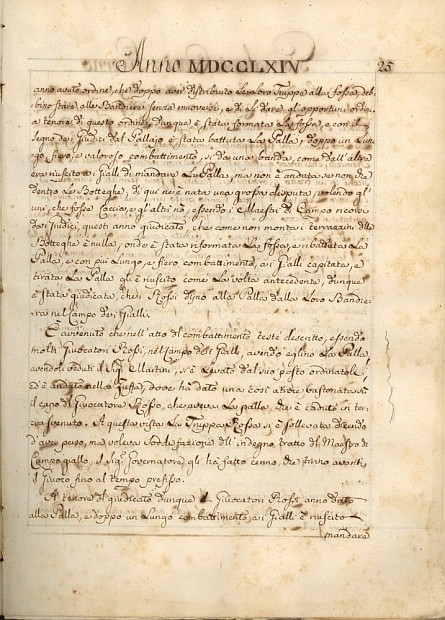 Anno MDCCLXIV
25
anno avuto ordine, che doppo aver distribuito le loro Truppe alla fossa, deb-
bino stare alle Bandiere senza muoversi, e di lì dare gl'opportuni ordini.
a tenore di questo ordine dunque è stata formata la fossa, e con il
segno de Giudici dal Pallajo è stata battuta la Palla; doppo un Lun-
go, fiero, e valoroso combattimento, si da una banda, come dall'altra
era riuscito a i Gialli di mandare La Palla, ma non è andata se non che
dentro le Botteghe; di qui ne è nata una grossa disputa, volendo gl'
uni, che fosse Caccia, e gl'altri nò, essendo i Maestri di Campo ricorsi
da i Giudici, questi anno giudicato, che come non monta i terrazzin delle
Botteghe è nulla; onde è stata riformata La fossa, e ribattuta La
Palla, e con più Lungo, e fiero combattimento, a i Gialli capitata, e
tirata La Palla gl'è riuscito come La volta antecedente; dunque
è stata giudicata, che i Rossi dijno alla Palla dalla Loro Bandie-
ra nel Campo dei Gialli.
È avvenuto che nell'atto del combattimento teste descritto, essendo
molti Giuocatori Rossi, nel Campo dei Gialli, avendo eglino La Palla,
avendoli veduti il Sig. Martini, si è Levato dal suo posto ordinatoli,
ed è andato nella Zuffa, dove hà dato una così atroce bastonata sù
il capo del Giuocatore Rosso, che aveva La palla, che è caduto in ter-
ra svenuto. A questa vista La Truppa Rossa si è sollevata dicendo
d'aver perso, ma voleva Soddisfazione dell'indegno tratto del Maestro di
Campo giallo, il Sig. Governatore gli hà fatto cenno, che tirino avanti
il Giuoco fino al tempo prefisso.
A tenore di giudicato dunque i Giuocatori Rossi anno dato
alla Palla, e doppo un Lungo combattimento, a i Gialli è riuscito
mandare